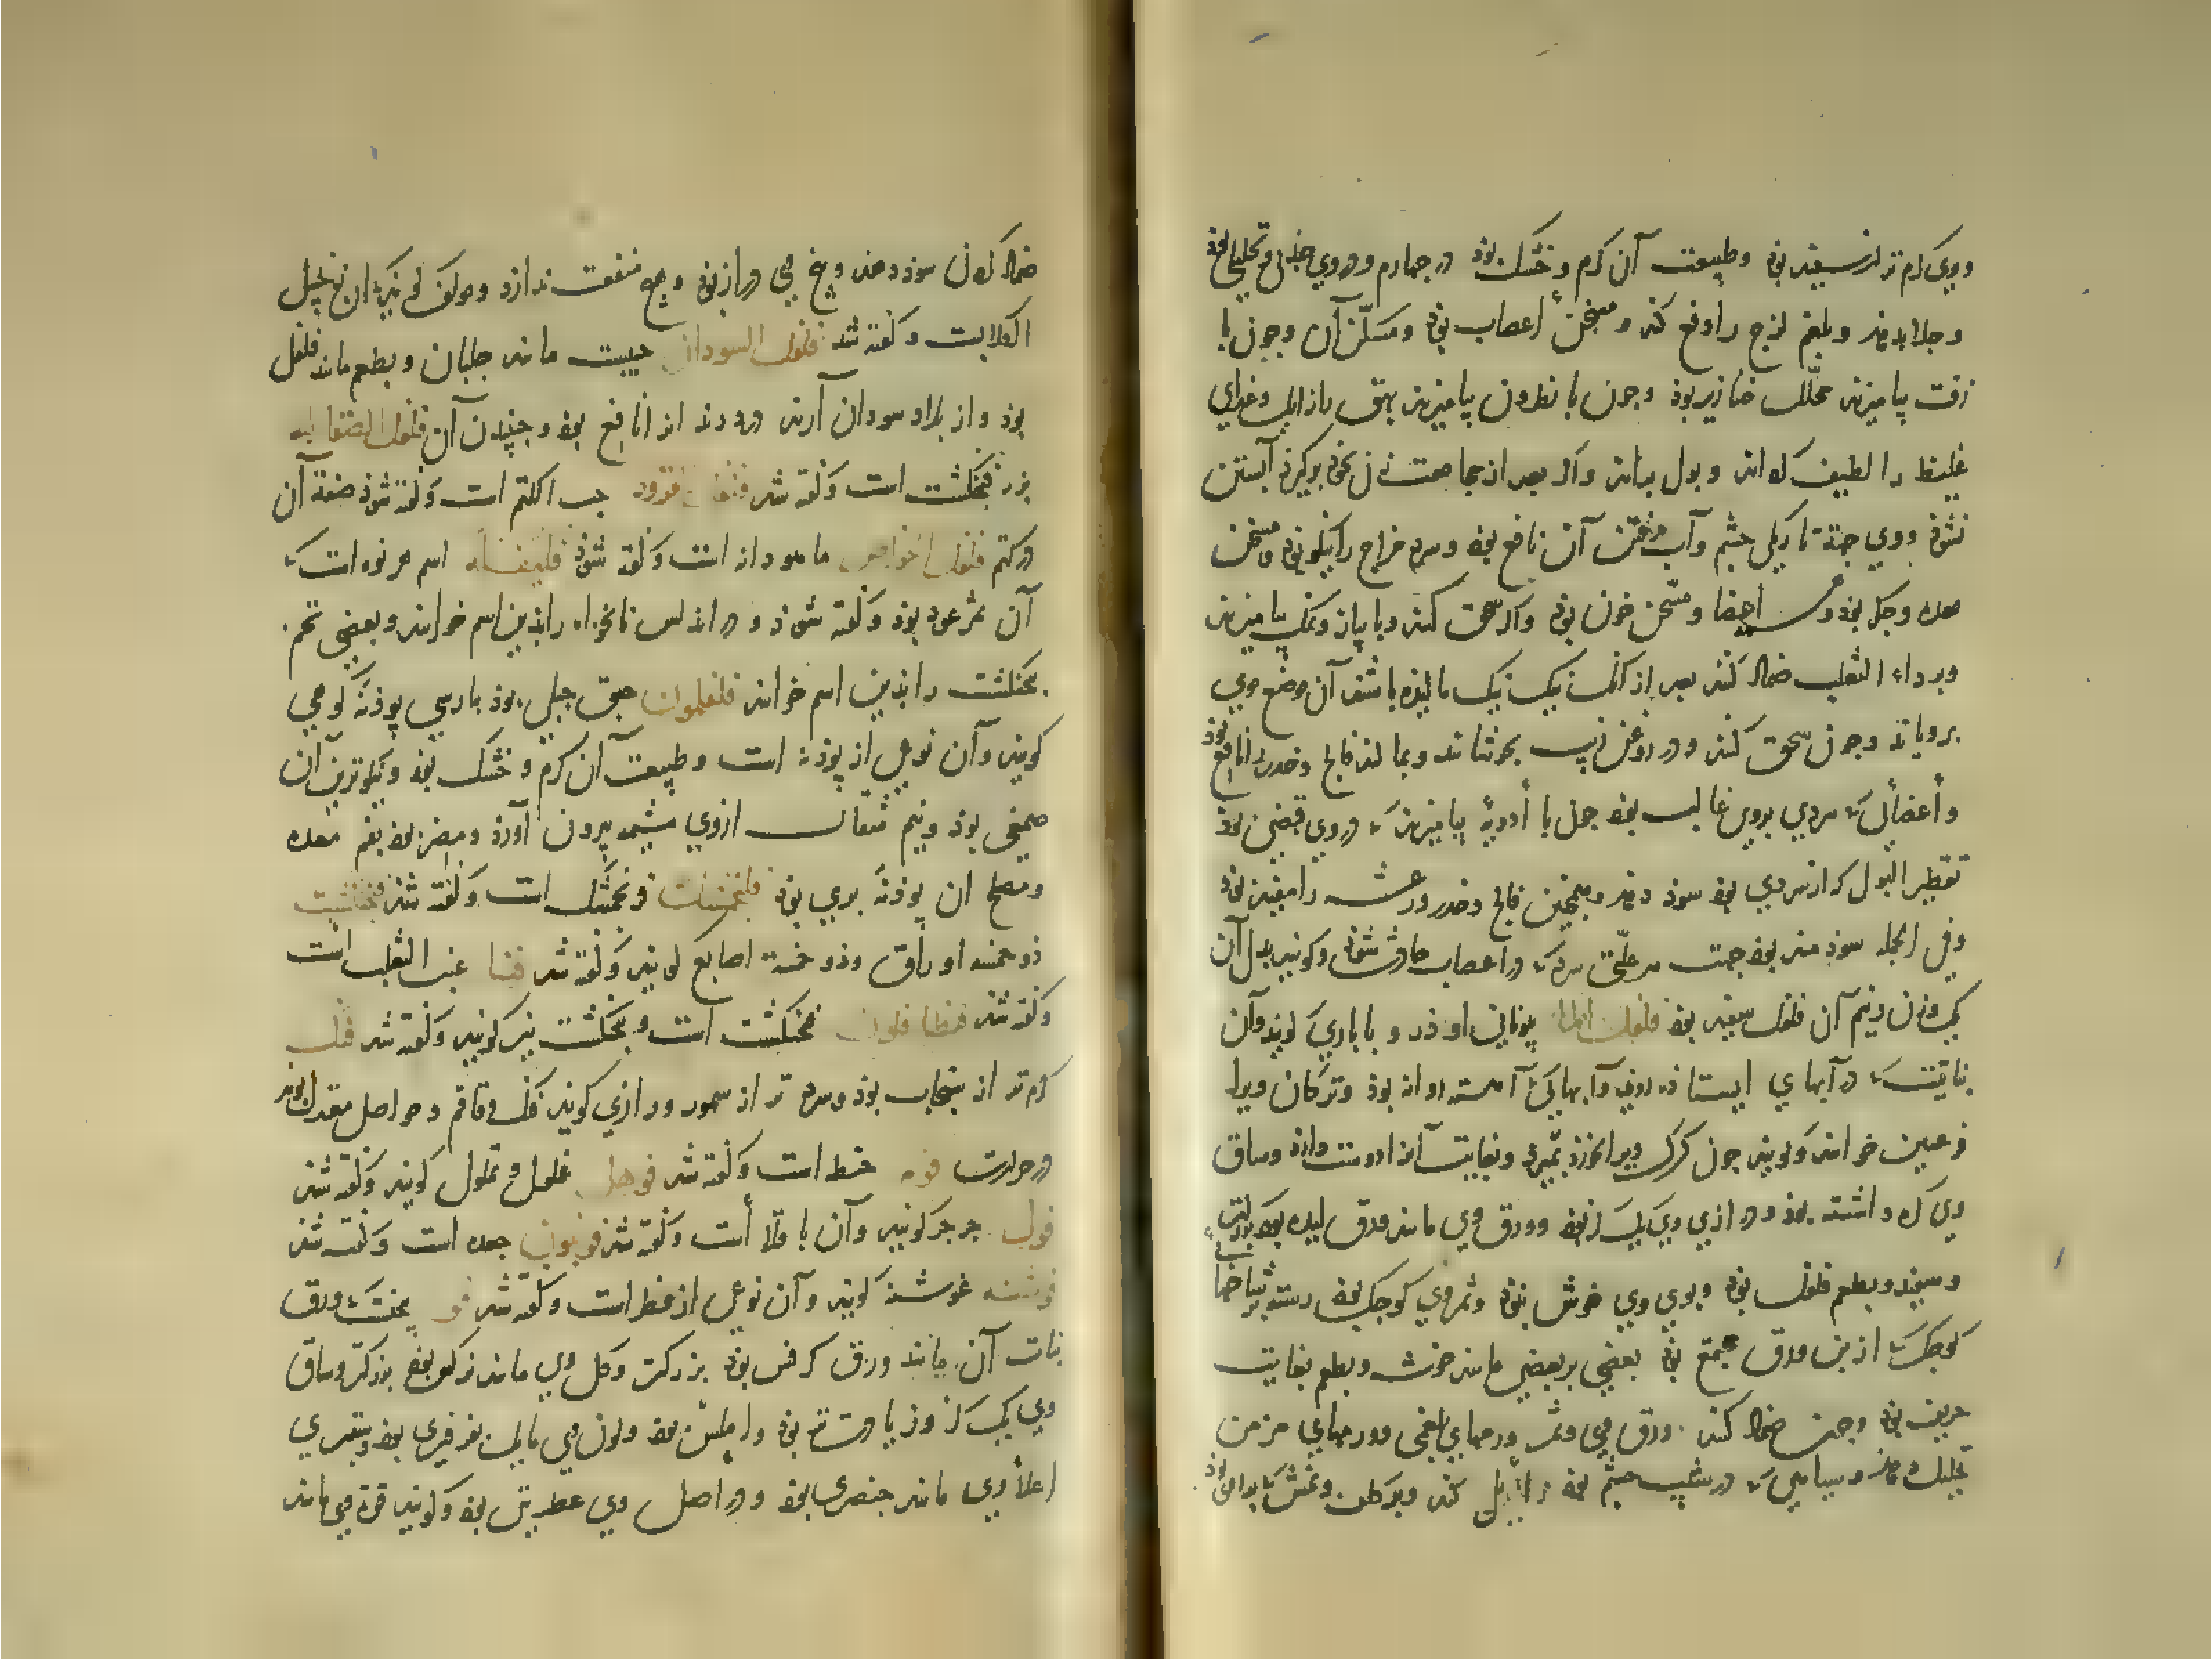 ووی کرم تر از سفید بوذ وطبیعت آن کرم و خشک بوذ در چهارم ودروی جذبی و تحلیلی بوذ
وجلا بدهد وبلغم لزج را دفع کند و مسخن أعصاب بوذ ومسکّن آن وجون با
زفت بیامیزند محلّل خنازیر بوذ وجون با نطرون بیامیزند بهق را زایل وغذای
غلیظ را لطیف کرداند وبول براند واکر بعد از مجامعت زن بخوذ برکیرد آبستن
نشوذ ووی جهة تاریکی چشم وآب رفتن آن نافع بوذ وسرد مزاج را نیکو بوذ ومسخن
معده وجکر بوذ و احشا ومسخن خون بوذ واکر سحق کنند وبا پیاز ونمک بیامیزند
وبر داء الثعلب ضماد کنند بعد از آنک نیک نیک مالیذه باشند آن موضع موی
برویاند وجون سحق کنند ودر روغن زیت بجوشانند وبمالند فالج وخدر را نافع بوذ
وأعضائی کی سردی بروی غالب بوذ جون با أدویهٔ بیامیزند کی دروی قبضی بوذ
تقطیر البول که از سردی بوذ سوذ دهد وهمچنین فالج وخدر ورعشه را مفید بوذ
وفی الجمله سوذمند بوذ جهت هر علّتی سرد کی در اعصاب حادث شوذ وکویند بدل آن
یک وزن ونیم آن فلفل سفید بوذ فلفل الماء بیونانی اوذرو باباری کویند وآن
نباتیست کی در آبهای ایستاذه روید وآبهائی کی آهسته روان بوذ وترکان ویرا
خوانند وکویند جون کرک ویرا بخورد بمیرد وبغایت آنرا دوست دارد وساق
وی کره داشته بوذ ودرازی وی یک کز بوذ وورق وی مانند ورق
وسفید وبطعم فلفل بوذ وبوی وی خوش نبوذ وثمر وی کوجک بوذ رسته بر شاخها
کوجک کی از بن ورق مجتمع بوذ بعضی بر بعضی مانند خوشه وبطعم بغایت
حریف بوذ وجون ضماد کنند ورق وی وثمر ورمهای بلغمی وورمهای مزمن
تحلیل دهد وسیاهی کی در شیب چشم بوذ زایل کند وبرکلف ونمش کی برو بوذ
ضماد کردن سوذ دهد وبیخ وی دراز بوذ وهیچ منفعت ندارد ومولف کوید کی آن زنجبیل
الکلابست وکفته شد فلفل السودان حبیست مانند جلبان وبطعم مانند فلفل
بوذ واز بلاد سودان آرند درد دندانرا نافع بوذ وجنبیدن آن فلفل الصقالبه
بزر فنجنکشت است وکفته شد فلفل القرود حب الکتم است وکفته شوذ صفة آن
در کتم فلفل اخواص ماهودانه است وکفته شوذ اسم هرنوه است کی
آن ثمر عود بوذ وکفته شوذ ودر اندلس نانخواه را بذین اسم خوانند وبعضی تخم
بنجنکشت را بذین اسم خوانند فلفلمون حبق جبلی بوذ بارسی پوذنهٔ کوهی
کویند وآن نوعی از پوذنه است وطبیعت آن کرم وخشک بوذ ونیکوترین آن
صیفی بوذ ونیم مثقال ازوی مشیمه بیرون آورد ومضر بوذ بفم معده
ومصلح ان پوذنهٔ بری بوذ فلنجمشک فرنجمشک است وکفته شد فنجنکشت
ذو خمسة اوراق وذو خمسة اصابع کویند وکفته شد فنا عنب الثعلب است
وکفته شد فنطافلون فنجنکشت است وبنجنکشت نیز کویند وکفته شد فنک
کرم تر از سنجاب بوذ وسرد تر از سمور ورازی کویند فنک وقاقم وحواصل معتدل بوند
در حرارت فوم حنطه است وکفته شد فوهل غملول وقملول کویند وکفته شد
فول جرجر کویند وآن باقلا أست وکفته شد فولیون جعده است وکفته شد
فوشنه غوشنه کویند وآن نوعی از فطر است وکفته شد فو بیخست کی ورق
نبات آن مانند ورق کرفس بوذ بزرکتر وکل وی مانند نرکس بوذ بزرکتر وساق
وی یک کز وزیادت تر بوذ واملس بوذ ولون وی مایل بفرفیری بوذ وستبری
اعلأ وی مانند خنصری بوذ ودر اصل وی عطریتی بوذ وکویند قوة وی مانند